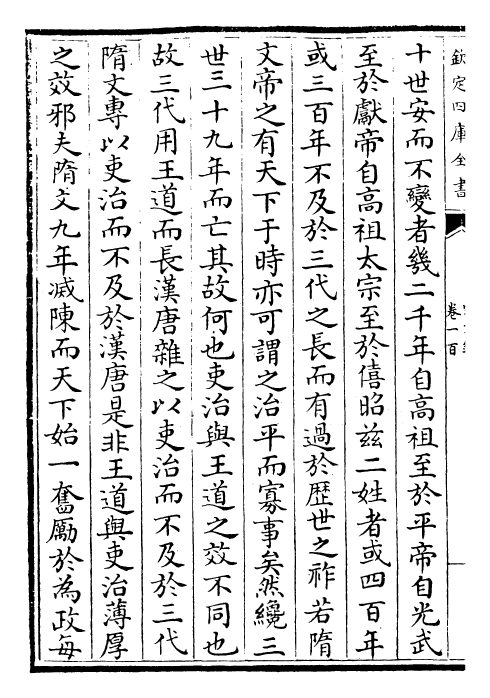 欽定四庫全書
卷一百
十世安而不變者幾二千年自高祖至於平帝自光武
至於獻帝自高祖太宗至於僖昭茲二姓者或四百年
或三百年不及於三代之長而有過於歷世之祚若隋
文帝之有天下于時亦可謂之治平而寡事矣然纔三
世三十九年而亡其故何也吏治與王道之效不同也
故三代用王道而長漢唐雜之以吏治而不及於三代
隋文專以吏治而不及於漢唐是非王道與吏治薄厚
之效邪夫隋文九年滅陳而天下始一奮勵於為政每